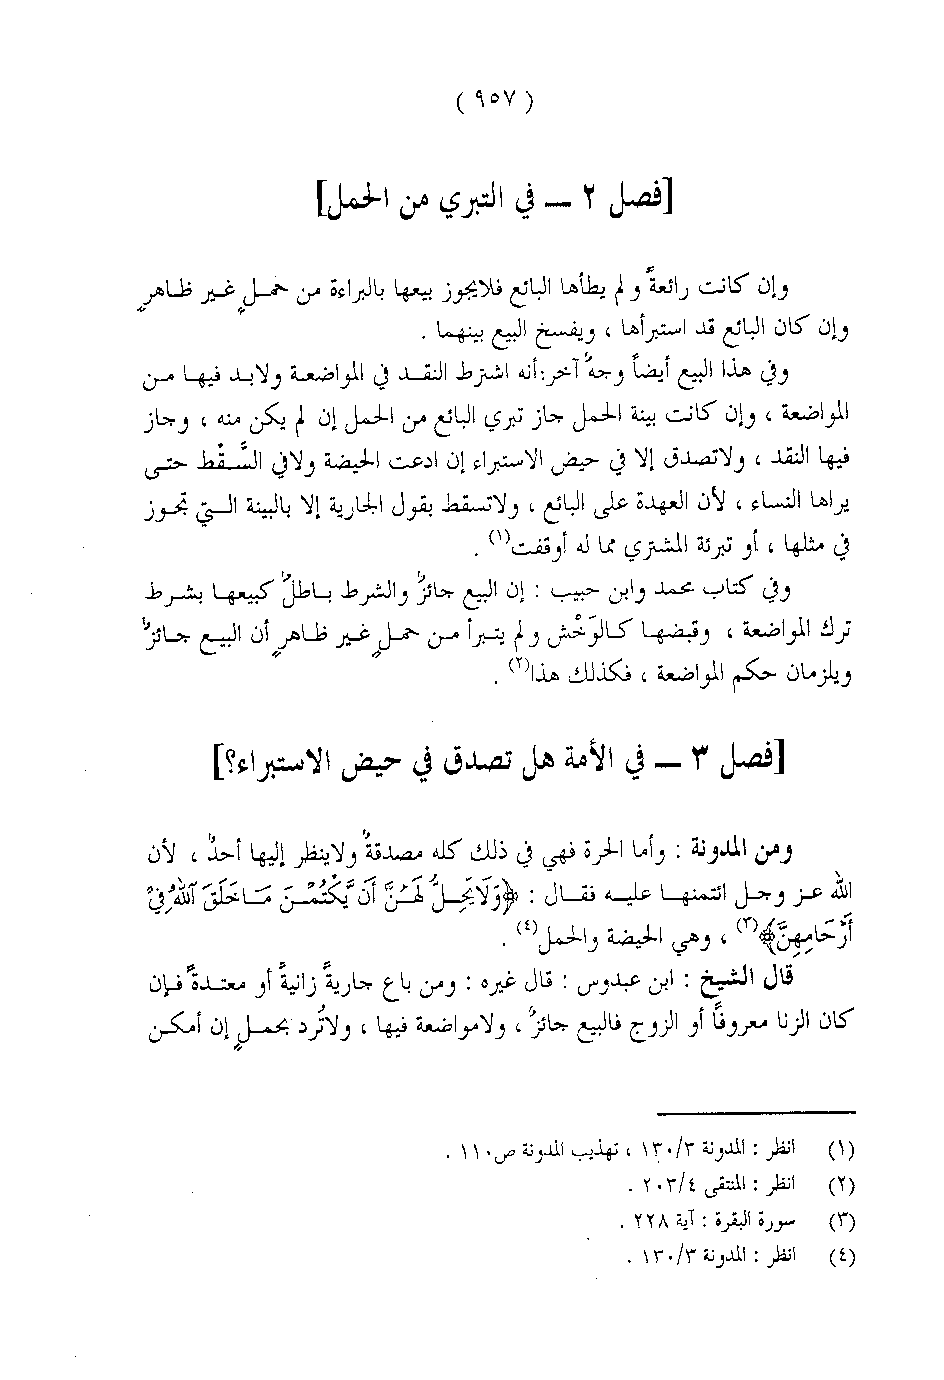 ( ٩٥٧ )
[فصل ٢ ــ في التبري من الحمل]
وإن كانت رائعةً و لم يطأها البائع فلايجوز بيعها بالبراءة من حملٍ غير ظاهرٍ
وإن كان البائع قد استبرأها ، ويفسخ البيع بينهما .
وفي هذا البيع أيضاً وجهٌ آخر:أنه اشترط النقد في المواضعة ولابد فيها من
المواضعة ، وإن كانت بينة الحمل جاز تبري البائع من الحمل إن لم يكن منه ، وجاز
فيها النقد ، ولاتصدق إلا في حيض الاستبراء إن ادعت الحيضة ولافي السَّقْط حتى
يراها النساء ، لأن العهدة على البائع ، ولاتسقط بقول الجارية إلا بالبينة التي تجوز
في مثلها ، أو تبرئة المشتري مما له أوقفت(١) .
وفي كتاب محمد وابن حبيب : إن البيع جائزٌ والشرط باطلٌ كبيعها بشرط
ترك المواضعة ، وقبضها كالوَخْش ولم يتبرأ من حملٍ غير ظاهرٍ أن البيع جائزٌ
ويلزمان حكم المواضعة ، فكذلك هذا(٢) .
[فصل ٣ ــ في الأمة هل تصدق في حيض الاستبراء؟]
ومن المدونة : وأما الحرة فهي في ذلك كله مصدقةٌ ولاينظر إليها أحدٌ ، لأن
الله عز وجل ائتمنها عليه فقال : ﴿وَلَا يَحِلُّ لَهُنَّ أَن يَكْتُمْنَ مَا خَلَقَ اللَّهُ فِي
أَرْحَامِهِنَّ﴾(٣) ، وهي الحيضة والحمل(٤) .
قال الشيخ : ابن عبدوس : قال غيره : ومن باع جاريةً زانيةً أو معتدةً فإن
كان الزنا معروفاً أو الزوج فالبيع جائزٌ ، ولامواضعة فيها ، ولاتُرد بحملٍ إن أمكن
(١) انظر : المدونة ١٣٠/٣ ، تهذيب المدونة ص١١٠ .
(٢) انظر : المنتقى ٢٠٣/٤ .
(٣) سورة البقرة : آية ٢٢٨ .
(٤) انظر : المدونة ١٣٠/٣ .